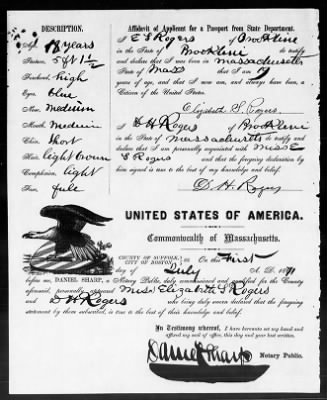 DESCRIPTION.
Age, 18 years
Stature, 5 ft 1 1/2
Forehead, high
Eyes, blue
Nose, Medium
Mouth, Medium
Chin, Short
Hair, light brown
Complexion, light
Face, full
Affidavit of Applicant for a Passport from State Department.
I E S Rogers of Brookline
in the State of Brookline do testify
and declare that I was born in Massachusetts
State of Mass that I am
years of age, and that I now am, and always have been, a
Citizen of the United States.
Elizabeth S. Rogers
I D H Rogers of Brookline
in the State of Massachusetts do testify and
declare that I am personally acquainted with Miss E
S Rogers and that the foregoing declaration by
her signed is true to the best of my knowledge and belief.
D. H. Rogers
UNITED STATES OF AMERICA.
Commonwealth of Massachusetts.
COUNTY OF SUFFOLK,
CITY OF BOSTON, ss. On the First
day of July A. D. 1871
before me, DANIEL SHARP, a Notary Public, duly commissioned and qualified for the County
aforesaid, personally appeared Miss Elizabeth S Rogers
and D H Rogers
statement by them subscribed, is true to the best of their knowledge and belief.
In Testimony whereof, I have hereunto set my hand
and affixed my seal of office, this day and year last written.
Daniel Sharp
Notary Public.